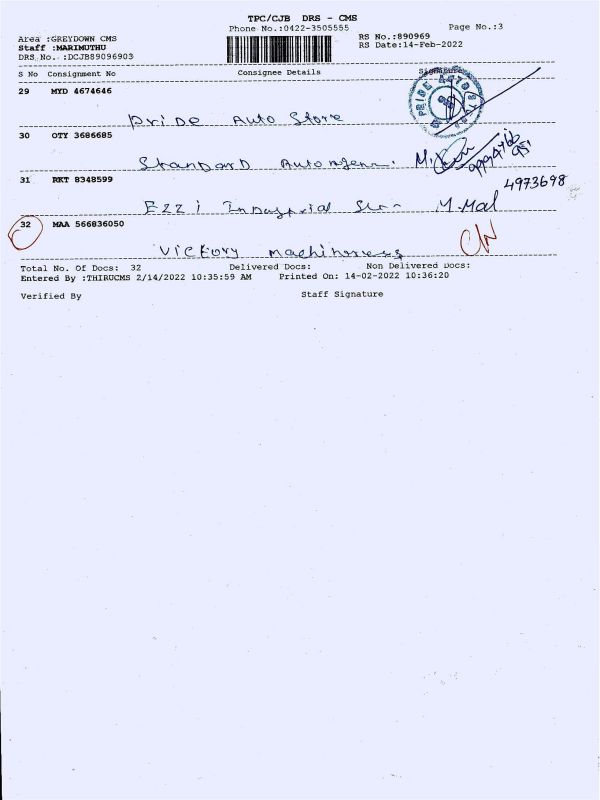 TPC/CJB DRS - CMS
Phone No.:0422-3505555 Page No.:3
Area :GREYDOWN CMS RS No.:890969
Staff :MARIMUTHU RS Date:14-Feb-2022
DRS No. :DCJB89096903
S No Consignment No Consignee Details Signature
29 MYD 4674646
Pride Auto Store
PRIDE AUTO
30 OTY 3686685
Standard Auto
31 RKT 8348599 4973698
Ezzi Industrial M.Mal
32 MAA 566836050
Victory C/N
Total No. Of Docs: 32 Delivered Docs: Non Delivered Docs:
Entered By :THIRUCMS 2/14/2022 10:35:59 AM Printed On: 14-02-2022 10:36:20
Verified By Staff Signature